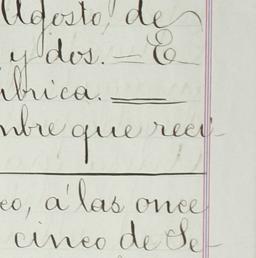 Agosto, de
y dos. — E
úbrica. —
mbre que reci-
eo, á las once
cinco de Se-